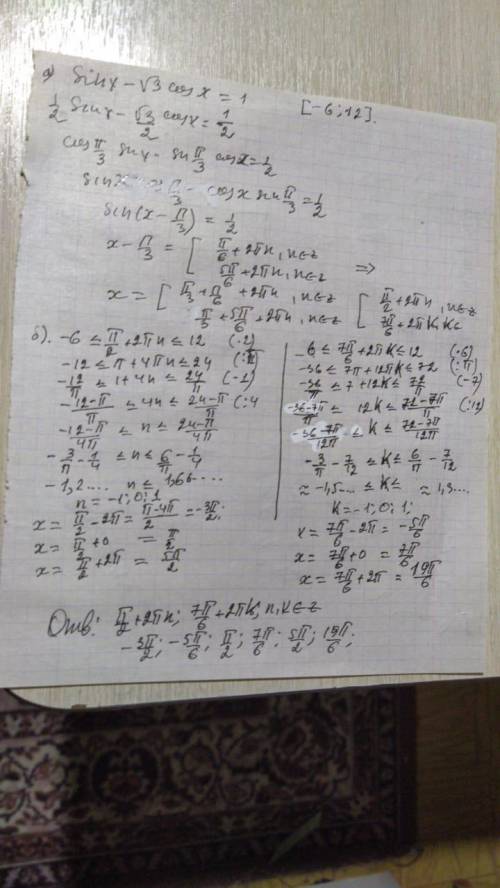 а) sinx − √3 cosx = 1 [−6; 12].
1/2 sinx − √3/2 cosx = 1/2
cos π/3 sinx − sin π/3 cosx = 1/2
sinx π/3 − cosx sin π/3 = 1/2
sin(x − π/3) = 1/2
x − π/3 = [ π/6 + 2πn, n∈z
5π/6 + 2πn, n∈z =>
x = [ π/3 + π/6 + 2πn, n∈z [ π/2 + 2πn, n∈z
π/3 + 5π/6 + 2πn, n∈z 7π/6 + 2πk, k∈
б). −6 ≤ π/2 + 2πn ≤ 12 (·2)
−12 ≤ π + 4πn ≤ 24 (:π)
−12/π ≤ 1 + 4n ≤ 24/π (−1)
−12−π/π ≤ 4n ≤ 24−π/π (:4
−12−π/4π ≤ n ≤ 24−π/4π
−3/π − 1/4 ≤ n ≤ 6/π − 1/4
−1,2.... n ≤ 1,66....
n = −1; 0; 1
x = π/2 − 2π = π−4π/2 = −3π/2;
x = π/2 + 0 = π/2
x = π/2 + 2π = 5π/2
−6 ≤ 7π/6 + 2πk ≤ 12 (·6)
−36 ≤ 7π + 12πk ≤ 72 (:π)
−36/π ≤ 7 + 12k ≤ 72/π (−7)
−36−7π/π ≤ 12k ≤ 72−7π/π (:12)
−36−7π ≤ k ≤ 72−7π/12π
−3/π − 7/12 ≤ k ≤ 6/π − 7/12
≈ −1,5.... ≤ k ≤ ≈ 1,3....
k = −1; 0; 1;
x = 7π/6 − 2π = −5π/6
x = 7π/6 + 0 = 7π/6
x = 7π/6 + 2π = 19π/6
Отв: π/2 + 2πn; 7π/6 + 2πk; n,k∈z
−3π/2; −5π/6; π/2; 7π/6; 5π/2; 19π/6;